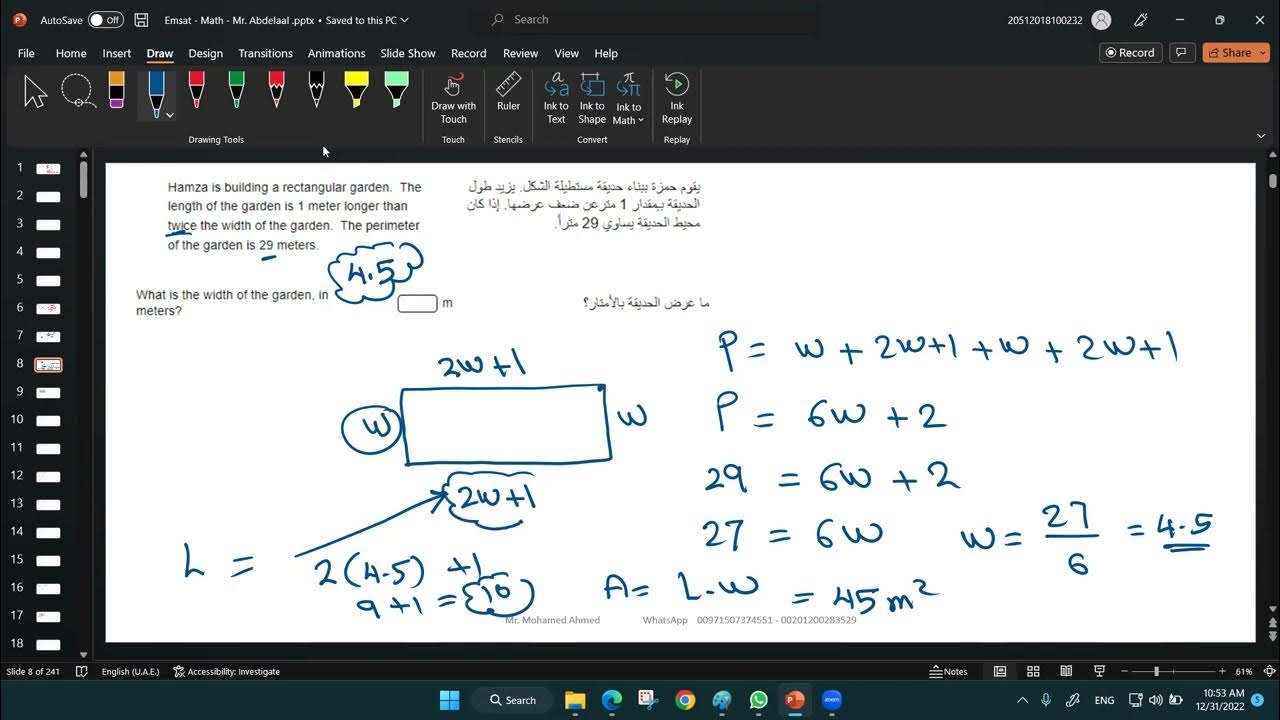 AutoSave Off Emsat - Math - Mr. Abdelaal .pptx • Saved to this PC Search 20512018100232
File Home Insert Draw Design Transitions Animations Slide Show Record Review View Help Record Share
Draw with Touch Ruler Ink to Text Ink to Shape Ink to Math Ink Replay
Drawing Tools Touch Stencils Convert Replay
1
2
3
4
5
6
7
8
9
10
11
12
13
14
15
16
17
18
Hamza is building a rectangular garden. The
length of the garden is 1 meter longer than
twice the width of the garden. The perimeter
of the garden is 29 meters.
يقوم حمزة ببناء حديقة مستطيلة الشكل. يزيد طول
الحديقة بمقدار 1 مترعن ضعف عرضها. إذا كان
محيط الحديقة يساوي 29 متراً.
4.5
What is the width of the garden, in
meters?
m
ما عرض الحديقة بالأمتار؟
2w+1
w
w
2w+1
P = w + 2w+1 + w + 2w+1
P = 6w + 2
29 = 6w + 2
27 = 6w
w = 27/6 = 4.5
L = 2(4.5) +1
9 +1 = 10
A = L.w = 45 m²
Mr. Mohamed Ahmed WhatsApp 00971507374551 - 00201200283529
Slide 8 of 241 English (U.A.E.) Accessibility: Investigate Notes 61%
Search zoom ENG 10:53 AM 5
12/31/2022